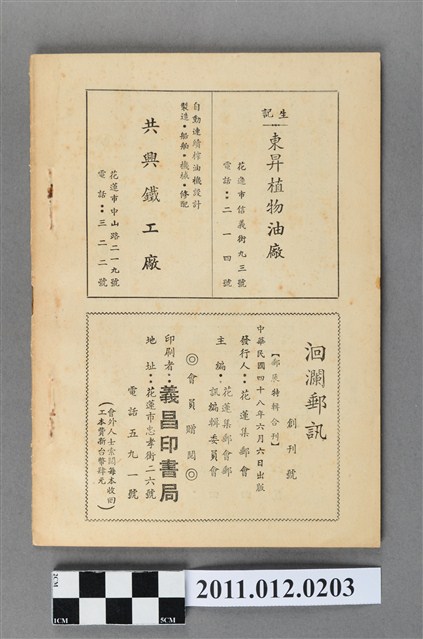 生記
東昇植物油廠
花蓮市信義街九三號
電話：二一四號
自動連續榨油機設計
製造・船舶・機械・修配
共興鐵工廠
花蓮市中山路二一九號
電話：三二二號
洄瀾郵訊
創刊號
【郵展特輯合刊】
中華民國四十八年六月六日出版
發行人：花蓮集郵會
主編：花蓮集郵會郵
訊編輯委員會
◎會員贈閱◎
印刷者：義昌印書局
地址：花蓮市忠孝街二六號
電話五九一號
（會外人士索閱每本收回
工本費新台幣肆元）
1CM
2CM
5CM
2011.012.0203